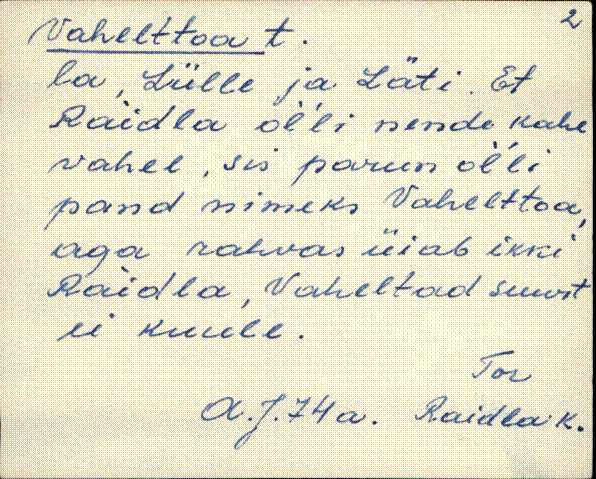 2
Vahelttoa t.
la, Lülle ja Läti. Et
Raidla ol̀li nende kahe
vahel, sis parun ol̀li
pand nimeks Vahelttoa,
aga rahvas üiab ikki
Raidla, Vaheltad suurt
ei kuule.
Tor
A.J. 74 a. Raidla k.